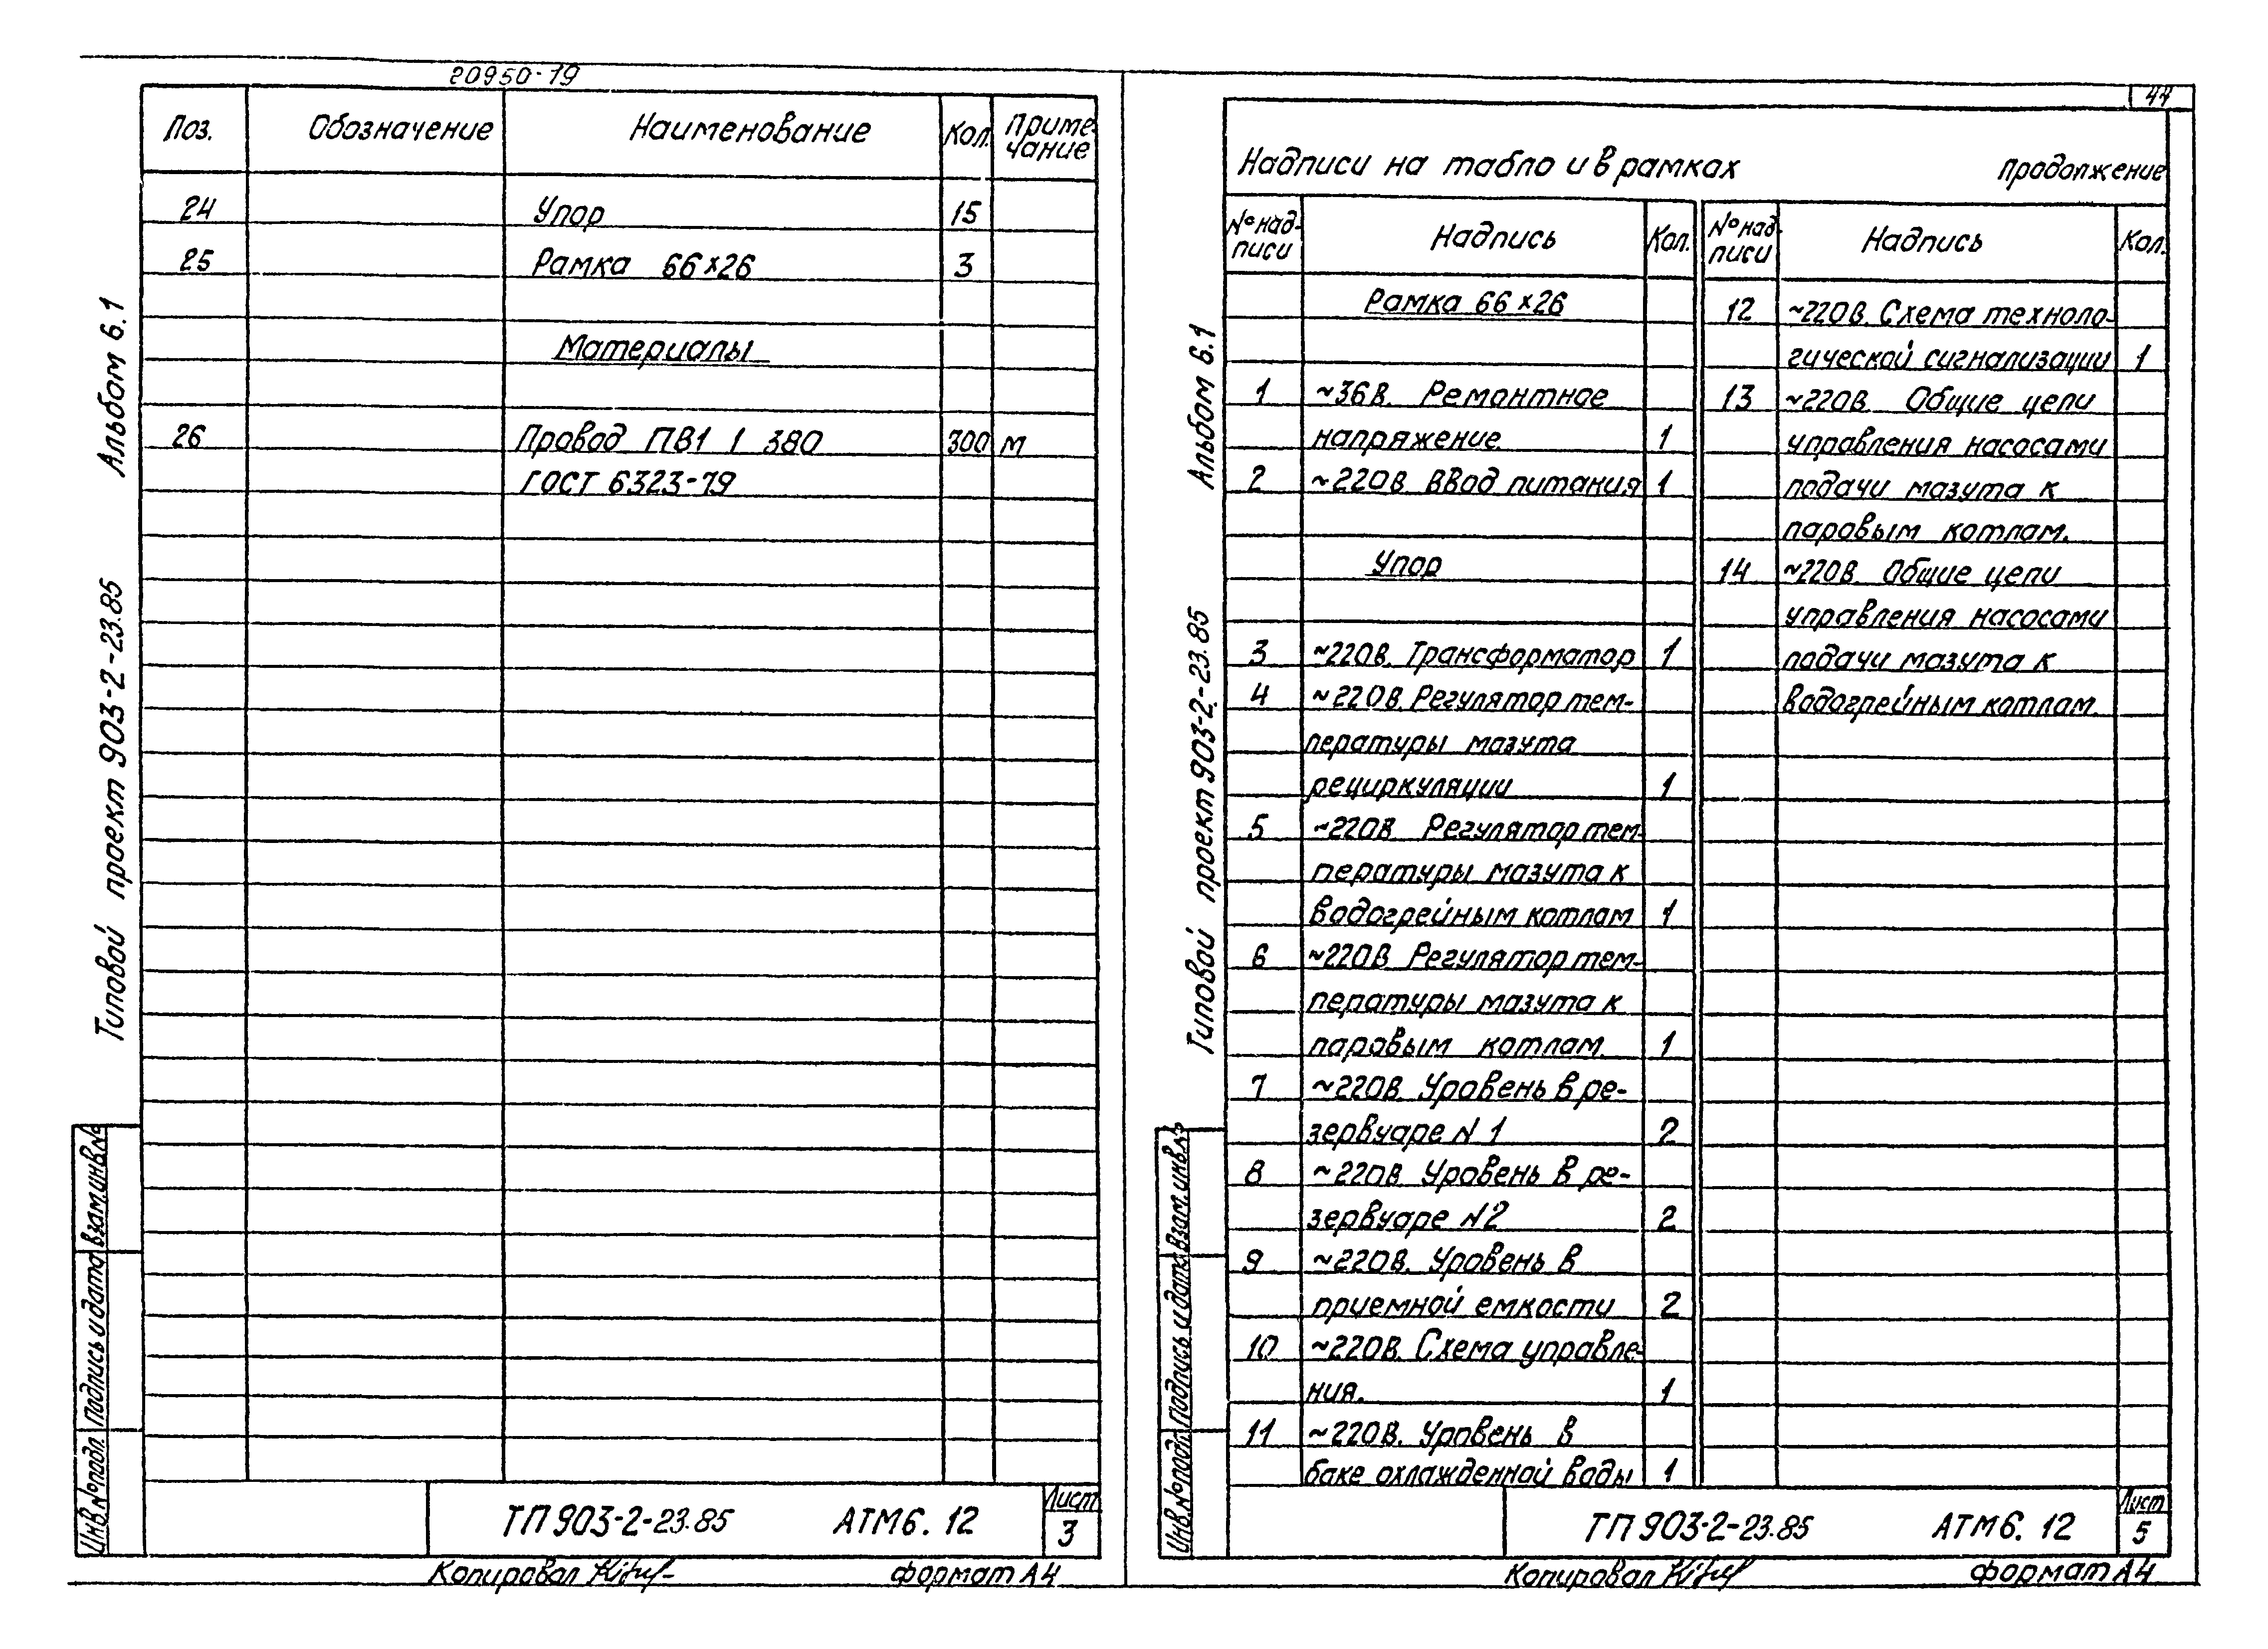 20950-19
Поз. Обозначение Наименование Кол. Приме-
чание
24 Упор 15
25 Рамка 66×26 3
Материалы
26 Провод ПВ1 1 380 300 м
ГОСТ 6323-79
Альбом 6.1
Типовой проект 903-2-23.85
Взам.инв.№
Подпись и дата
Инв.№подл.
ТП 903-2-23.85 АТМ6. 12 Лист
3
Копировал
формат А4
44
Надписи на табло и в рамках продолжение
№ над-
писи Надпись Кол.
Рамка 66×26
1 ~36В. Ремонтное
напряжение 1
2 ~220В Ввод питания 1
Упор
3 ~220В. Трансформатор 1
4 ~220В. Регулятор тем-
пературы мазута
рециркуляции 1
5 ~220В Регулятор тем-
пературы мазута к
водогрейным котлам 1
6 ~220В Регулятор тем-
пературы мазута к
паровым котлам. 1
7 ~220В. Уровень в ре-
зервуаре N 1 2
8 ~220В. Уровень в ре-
зервуаре N2 2
9 ~220В. Уровень в
приемной емкости 2
10 ~220В. Схема управле-
ния. 1
11 ~220В. Уровень в
баке охлажденной воды 1
№ над-
писи Надпись Кол.
12 ~220В. Схема техноло-
гической сигнализации 1
13 ~220В. Общие цепи
управления насосами
подачи мазута к
паровым котлам.
14 ~220В. Общие цепи
управления насосами
подачи мазута к
водогрейным котлам.
Альбом 6.1
Типовой проект 903-2-23.85
Взам.инв.№
Подпись и дата
Инв.№подл.
ТП 903-2-23.85 АТМ6. 12 Лист
5
Копировал
формат А4